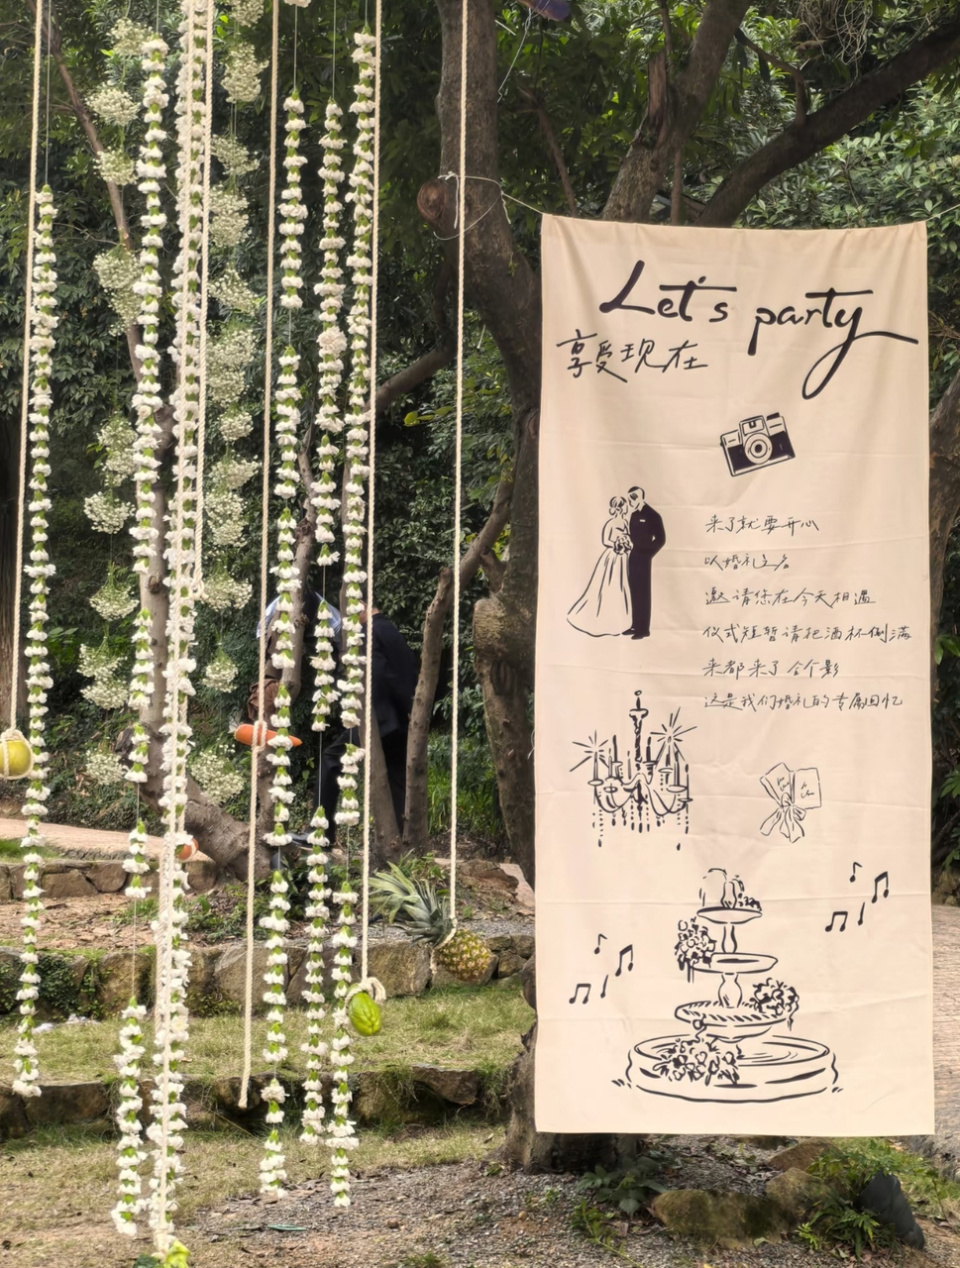 Let's party
享受现在
来了就要开心
以婚礼之名
邀请您在今天相遇
仪式短暂请把酒杯倒满
来都来了合个影
这是我们婚礼的专属回忆